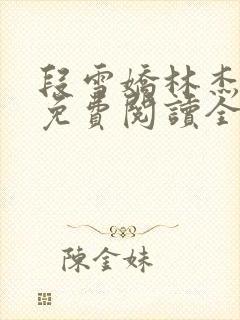 段雪嬌林杰
免費閱讀全
陳金妹